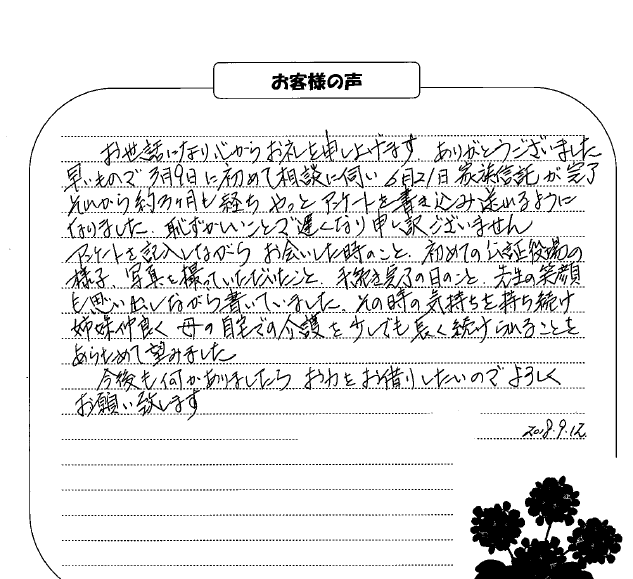 お客様の声
お世話になり心からお礼を申し上げます ありがとうございました
早いもので3月9日に初めて相談に伺い 6月21日家族信託が完了
それから約3ヶ月も経ち やっとアケートを書き込み送れるように
なりました。恥ずかしいことで遅くなり申し訳ございません
アケートを記入しながら お会いした時のこと、初めての公証役場の
様子、写真を撮っていただいたこと、手続き完了の日のこと、先生の笑顔
も思い出しながら書いていました、その時の気持ちを持ち続け
姉妹仲良く 母の自宅での介護を少しでも長く続けられることを
あらためて望みました
今後も何かありましたら お力をお借りしたいので よろしく
お願い致します
2018.9.12.